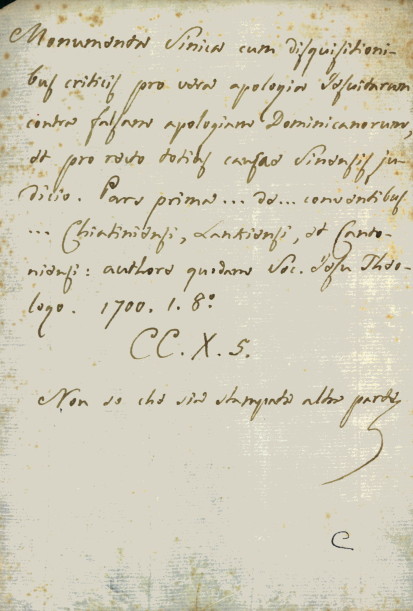 Monumenta Sinica cum disquisitioni-
bus criticis pro vera apologia Jesuitarum
contra falsam apologiam Dominicanorum,
et pro recto totius causae Sinensis ju-
dicio. Pars prima ... de ... conventibus
... Chiatiniensi, Lankiensi, et Canto-
niensi: authore quidam Soc. Jesu Theo-
logo. 1700. 1. 8º
CC. X. 5.
Non so che sia stampata altra parte
C